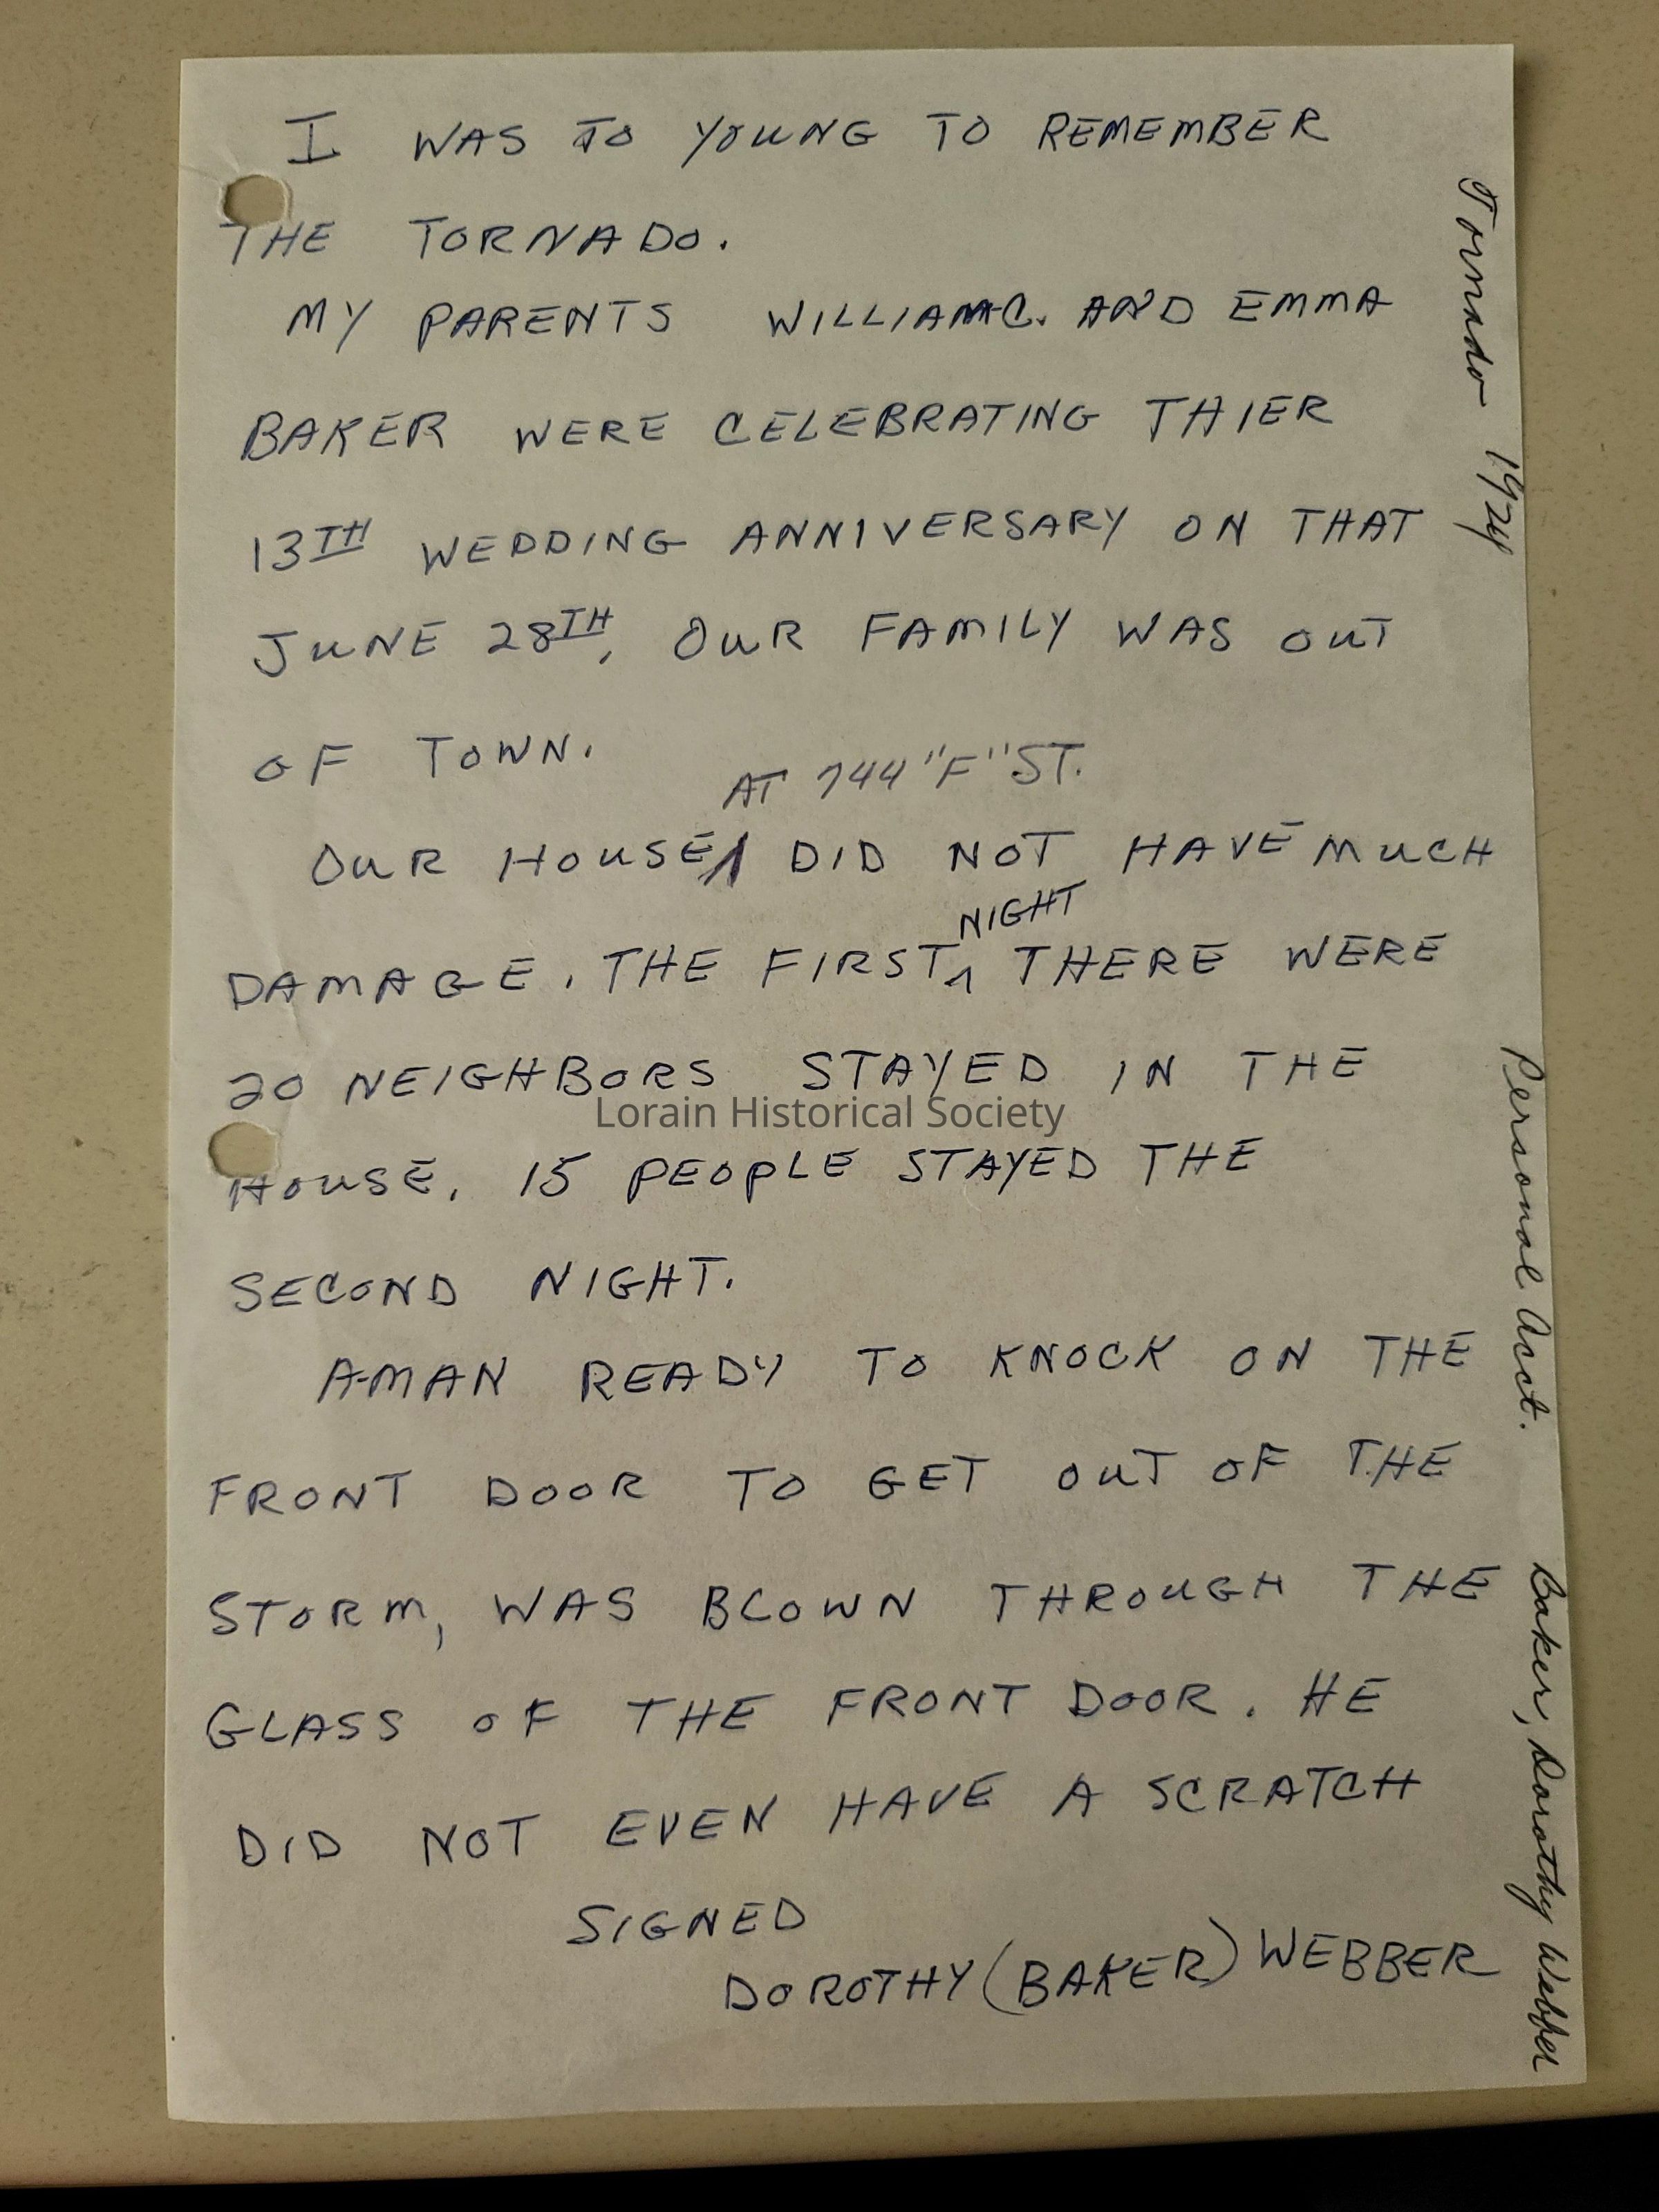 I WAS TO YOUNG TO REMEMBER
THE TORNADO.
MY PARENTS WILLIAM C. AND EMMA
BAKER WERE CELEBRATING THIER
13TH WEDDING ANNIVERSARY ON THAT
JUNE 28TH, OUR FAMILY WAS OUT
OF TOWN.
AT 744 "F" ST.
OUR HOUSE DID NOT HAVE MUCH
NIGHT
DAMAGE. THE FIRST THERE WERE
20 NEIGHBORS STAYED IN THE
Lorain Historical Society
HOUSE. 15 PEOPLE STAYED THE
SECOND NIGHT.
A MAN READY TO KNOCK ON THE
FRONT DOOR TO GET OUT OF THE
STORM, WAS BLOWN THROUGH THE
GLASS OF THE FRONT DOOR. HE
DID NOT EVEN HAVE A SCRATCH
SIGNED
DOROTHY (BAKER) WEBBER
Tornado 1924 Personal Acct. Baker, Dorothy Webber